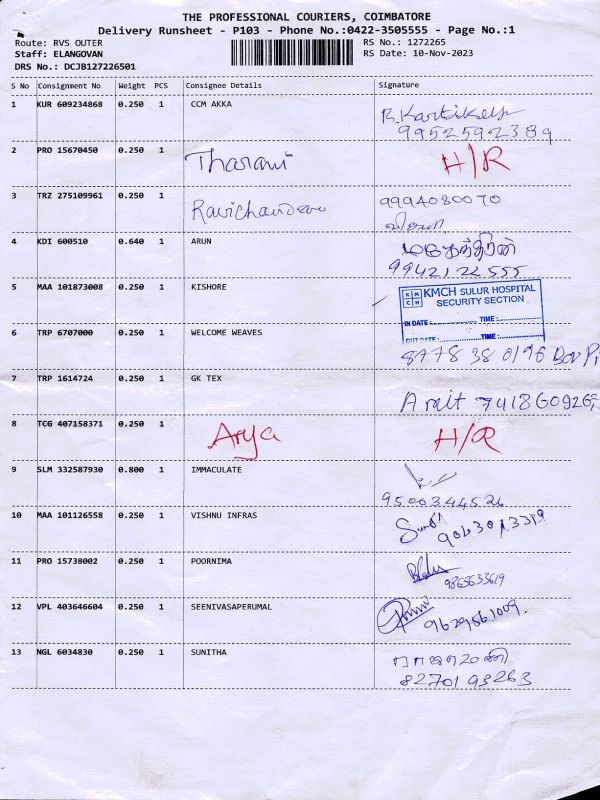 THE PROFESSIONAL COURIERS, COIMBATORE
Delivery Runsheet - P103 - Phone No.:0422-3505555 - Page No.:1
Route: RVS OUTER RS No.: 1272265
Staff: ELANGOVAN RS Date: 10-Nov-2023
DRS No.: DCJB127226501
S No Consignment No Weight PCS Consignee Details Signature
1 KUR 609234868 0.250 1 CCM AKKA
9952592389
2 PRO 15670450 0.250 1 Tharani H/R
3 TRZ 275109961 0.250 1 9994080070
4 KDI 600510 0.640 1 ARUN மகேந்திரன்
99421 22555
5 MAA 101873008 0.250 1 KISHORE KMCH SULUR HOSPITAL
SECURITY SECTION
IN DATE: TIME:
OUT DATE: TIME:
6 TRP 6707000 0.250 1 WELCOME WEAVES
8778 38 0196
7 TRP 1614724 0.250 1 GK TEX
8 TCG 407158371 0.250 1 Arya H/R
9 SLM 332587930 0.800 1 IMMACULATE
9500344526
10 MAA 101126558 0.250 1 VISHNU INFRAS
11 PRO 15738002 0.250 1 POORNIMA
9865633619
12 VPL 403646604 0.250 1 SEENIVASAPERUMAL
9629561009
13 NGL 6034830 0.250 1 SUNITHA
8270193263